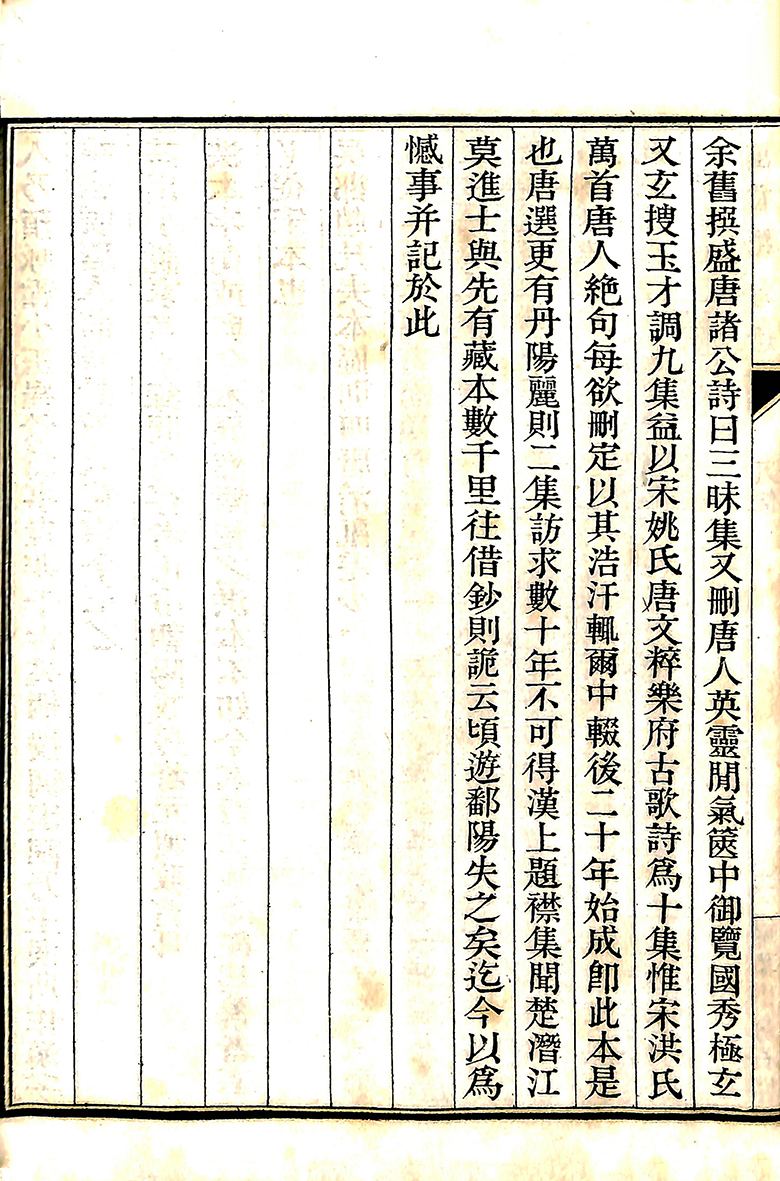 余舊撰盛唐諸公詩曰三昧集又刪唐人英靈閒氣篋中御覽國秀極玄
又玄搜玉才調九集益以宋姚氏唐文粹樂府古歌詩爲十集惟宋洪氏
萬首唐人絶句每欲刪定以其浩汗輒爾中輟後二十年始成卽此本是
也唐選更有丹陽麗則二集訪求數十年不可得漢上題襟集聞楚潛江
莫進士與先有藏本數千里往借鈔則詭云頃遊鄱陽失之矣迄今以爲
憾事并記於此